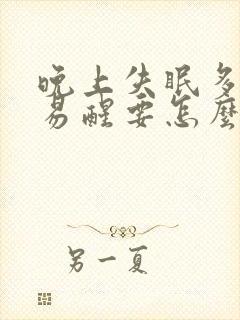 晚上失眠多
易醒要怎麼
另一夏